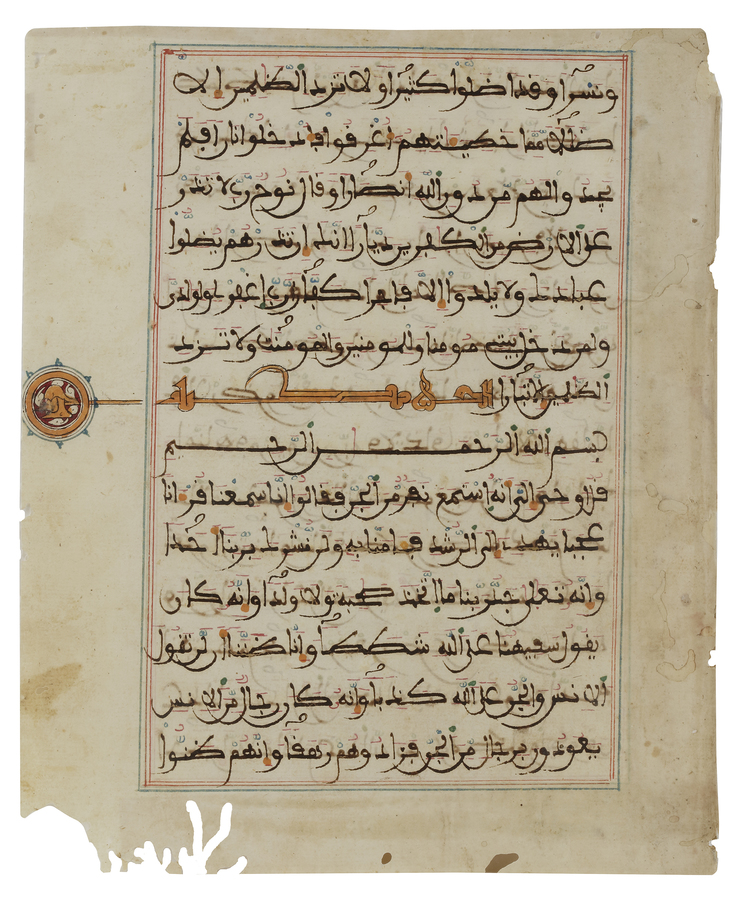 ونسرا وقد اضلوا كثيرا ولا تزد الظلمين الا
ضللا مما خطيئتهم اغرقوا فادخلوا نارا فلم
يجدوا لهم من دون الله انصارا وقال نوح رب لا تذر
على الارض من الكفرين ديارا انك ان تذرهم يضلوا
عبادك ولا يلدوا الا فاجرا كفارا رب اغفر لي ولولدي
ولمن دخل بيتي مومنا وللمومنين والمومنت ولا تزد
الظلمين الا تبارا
بسم الله الرحمن الرحيم
قل اوحي الي انه استمع نفر من الجن فقالوا انا سمعنا قرانا
عجبا يهدي الى الرشد فامنا به ولن نشرك بربنا احدا
وانه تعلى جد ربنا ما اتخذ صحبة ولا ولدا وانه كان
يقول سفيهنا على الله شططا وانا ظننا ان لن تقول
الانس والجن على الله كذبا وانه كان رجال من الانس
يعوذون برجال من الجن فزادوهم رهقا وانهم ظنوا